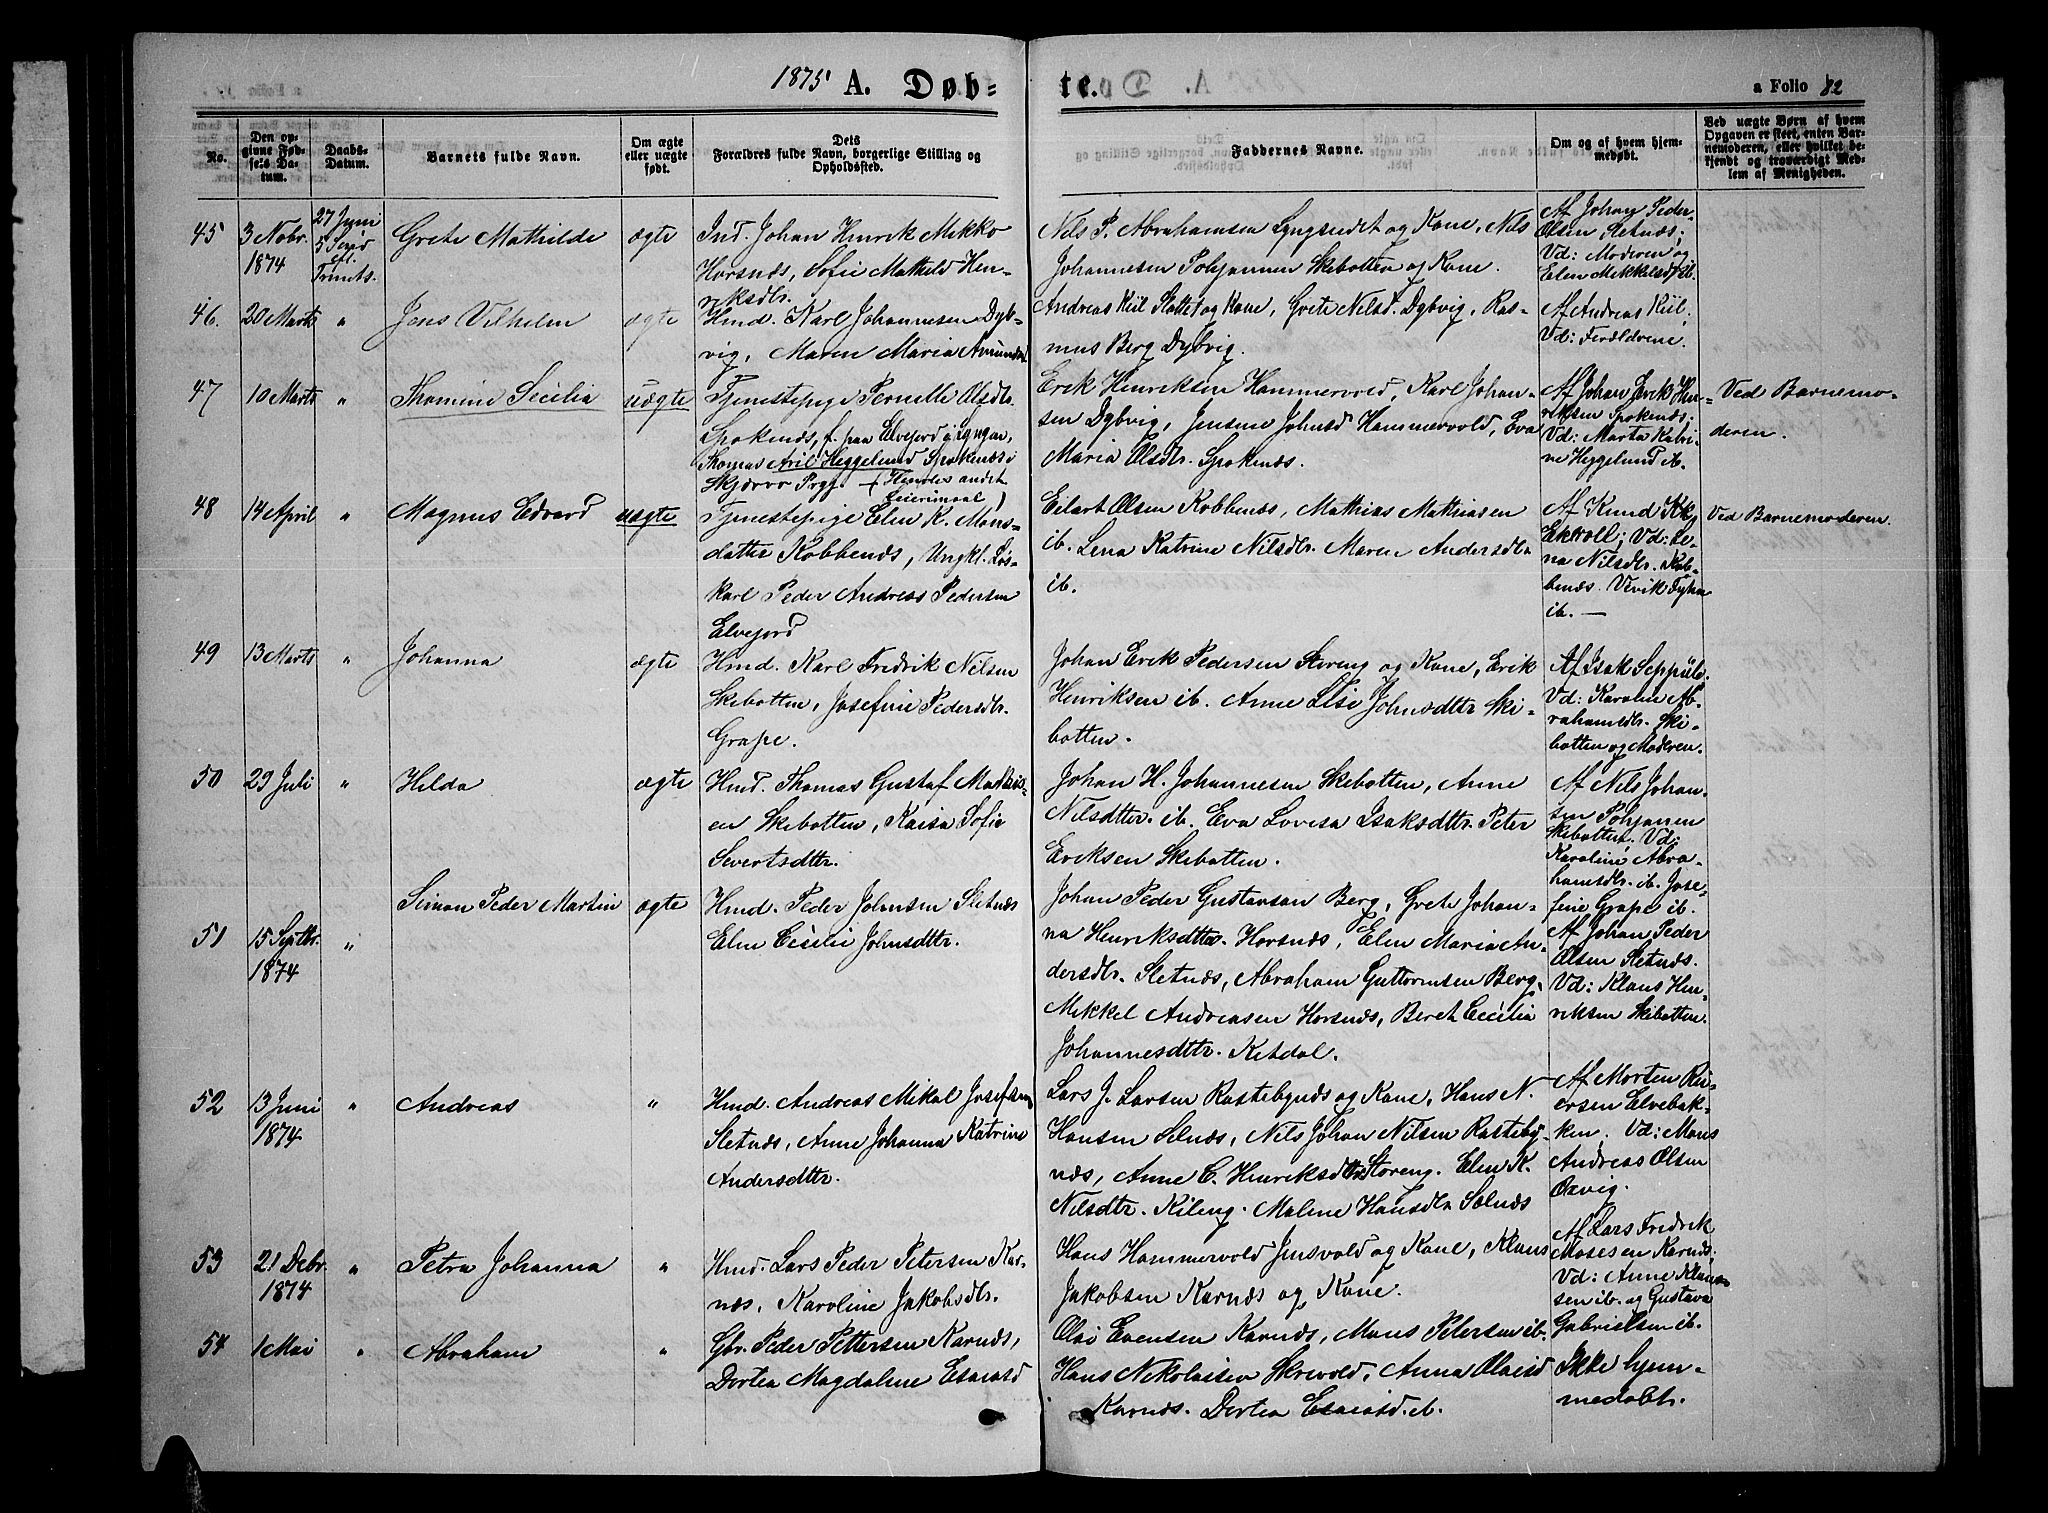 1875 A. Døb-
te.
a Folio 82
No.
Den op-
givne Fød-
sels Da-
tum.
Daabs-
Datum.
Barnets fulde Navn.
Om ægte
eller uægte
født.
Dets
Forældres fulde Navn, borgerlige Stilling og
Opholdssted.
Faddernes Navne.
Om og af hvem hjem-
medøbt.
Ved uægte Børn af hvem
Opgaven er skeet, enten Bar-
nemoderen, eller hvilket be-
kjendt og troværdigt Med-
lem af Menigheden.
45
3 Nobr.
1874
27 Juni
5 Sønd
eft.
Trinits.
Grete Mathilde
ægte
Ind. Johan Henrik Mikko
Horsnæs, Sofie Mathild Hen-
riksdtr.
Nils P. Abrahamsen Lyngseidet og Kone, Nils
Johannesen Pohjannen Skibotten og Kone.
Af Johan Peder
Olsen Sletnæs;
Vd: Moderen og
Elen Mikkelsd. ib.
46.
20 Marts
"
Jens Vilhelm
ægte
Hmd. Karl Johannesen Dyb-
vig, Maren Maria Amundsd.
Andreas Kiil Slottet og Kone, Grete Nilsd. Dybvig, Ras-
mus Berg Dybvig.
Af Andreas Kiil.
Vd: Forældrene.
47
10 Marts
"
Thomine Secilia
uægte
Tjenestepige Pernille Olsdtr.
Spokenæs, f. paa Elvejord i Lyngen,
Thomas Aril Heggelund Spokenæs i
Skjervø Prgj. (Hendes andet
Leiermaal)
Erik Henriksen Hammervold, Karl Johan-
sen Dybvig, Jensine Johnsd Hammervold, Eva
Maria Olsdtr. Spokenæs.
Af Johan Erik Hen-
riksen Spokenæs;
Vd: Marta Katri-
ne Heggelund ib.
Ved Barnemo-
deren.
48
14 April
"
Magnus Edvard
uægte
Tjenestepige Elen K. Mons-
datter Kobbenæs, Ungkl. Løs-
karl Peder Andreas Pedersen
Elvejord
Eilart Olsen Kobbenæs, Mathias Mathiasen
ib. Lena Katrine Nilsdtr. Maren Andersdtr
ib.
Af Knud
Ekkroll; Vd: Le-
na Nilsdtr. Kob-
benæs.
ib. —
Ved Barnemoderen.
49
13 Marts
"
Johanna
ægte
Hmd. Karl Fredrik Nilsen
Skibotten, Josefine Pedersdtr.
Grape.
Johan Erik Pedersen Storeng og Kone, Erik
Henriksen ib. Anne Lisi Johnsdttr Ski-
botten.
Af Isak Seppälä.
Vd: Karolin Ab-
rahamsdtr. Ski-
botten og Moderen.
50
29 Juli
"
Hilda
ægte
Hmd. Thomas Gustaf Mathis-
en Skibotten, Kaisa Sofie
Sivertsdttr.
Johan H. Johannesen Skibotten, Anne
Nilsdtter. ib. Eva Lovisa Isaksdttr. Peter
Eriksen Skibotten.
Af Nils Johan-
sen Pohjanen
Skibotten. Vd:
Karoline Abra-
hamsdtr. ib. Jose-
fine Grape ib.
51
15 Septbr.
1874
"
Simon Peder Martin
ægte
Hmd. Peder Johnsen Sletnæs
Elen Cecilie Johnsdttr.
Johan Peder Gustavsan Berg, Grete Johan-
na Henriksdtter. Horsnæs, Elen Maria An-
dersdtr. Sletnæs, Abraham Guttormsen Berg,
Mikkel Andreasen Horsnæs, Beret Cecilia
Johannesdttr. Kitdal.
Af Johan Peder
Olsen Sletnæs.
Vd: Klaus Hen-
riksen Skibotten.
52
13 Juni
1874
"
Andreas
"
Hmd. Andreas Mikal Josefsen
Sletnæs, Anne Johanna Katrine
Andersdttr.
Lars J. Larsen Rastebynæs og Kone, Hans N.
Hansen Selnæs, Nils Johan Nilsen Rasteby-
næs, Anne C. Henriksdttr Storeng. Elen K.
Nilsdtr. Kileng. Malene Hansdtr Selnæs
Af Morten Rei-
ersen Elvebak-
ken. Vd: Mons
Andreas Olsen
Oxvig.
53
21 Debr.
1874
"
Petra Johanna
"
Hmd. Lars Peder Petersen Kar-
næs, Karoline Jakobsdtr.
Hans Hammervold Jensvold og Kone, Klaus
Jakobsen Karnæs og Kone.
Af Lars Fredrik
Mosesen Karnæs.
Vd: Anne Klau-
sen ib. og Gustava
Gabrielsen ib.
54
1 Mai
"
Abraham
"
Gbr. Peder Pettersen Karnæs,
Dortea Magdalene Esaiasd
Olai Evensen Karnæs, Mons Petersen ib.
Hans Nikolaisen Skrivold, Anna Olaisd
Karnæs. Dortea Esaiasd. ib.
Ikke hjem-
medøbt.